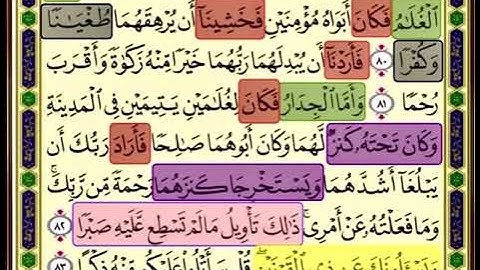 ٱلْغُلَٰمُ فَكَانَ أَبَوَاهُ مُؤْمِنَيْنِ فَخَشِينَآ أَن يُرْهِقَهُمَا طُغْيَٰنًا
وَكُفْرًا ٨٠ فَأَرَدْنَآ أَن يُبْدِلَهُمَا رَبُّهُمَا خَيْرًا مِّنْهُ زَكَوٰةً وَأَقْرَبَ
رُحْمًا ٨١ وَأَمَّا ٱلْجِدَارُ فَكَانَ لِغُلَٰمَيْنِ يَتِيمَيْنِ فِى ٱلْمَدِينَةِ
وَكَانَ تَحْتَهُۥ كَنزٌ لَّهُمَا وَكَانَ أَبُوهُمَا صَٰلِحًا فَأَرَادَ رَبُّكَ أَن
يَبْلُغَآ أَشُدَّهُمَا وَيَسْتَخْرِجَا كَنزَهُمَا رَحْمَةً مِّن رَّبِّكَ ۚ
وَمَا فَعَلْتُهُۥ عَنْ أَمْرِى ۚ ذَٰلِكَ تَأْوِيلُ مَا لَمْ تَسْطِع عَّلَيْهِ صَبْرًا ٨٢
وَيَسْـَٔلُونَكَ عَن ذِى ٱلْقَرْنَيْنِ ۖ قُلْ سَأَتْلُوا۟ عَلَيْكُم مِّنْهُ ذِكْرًا ٨٣